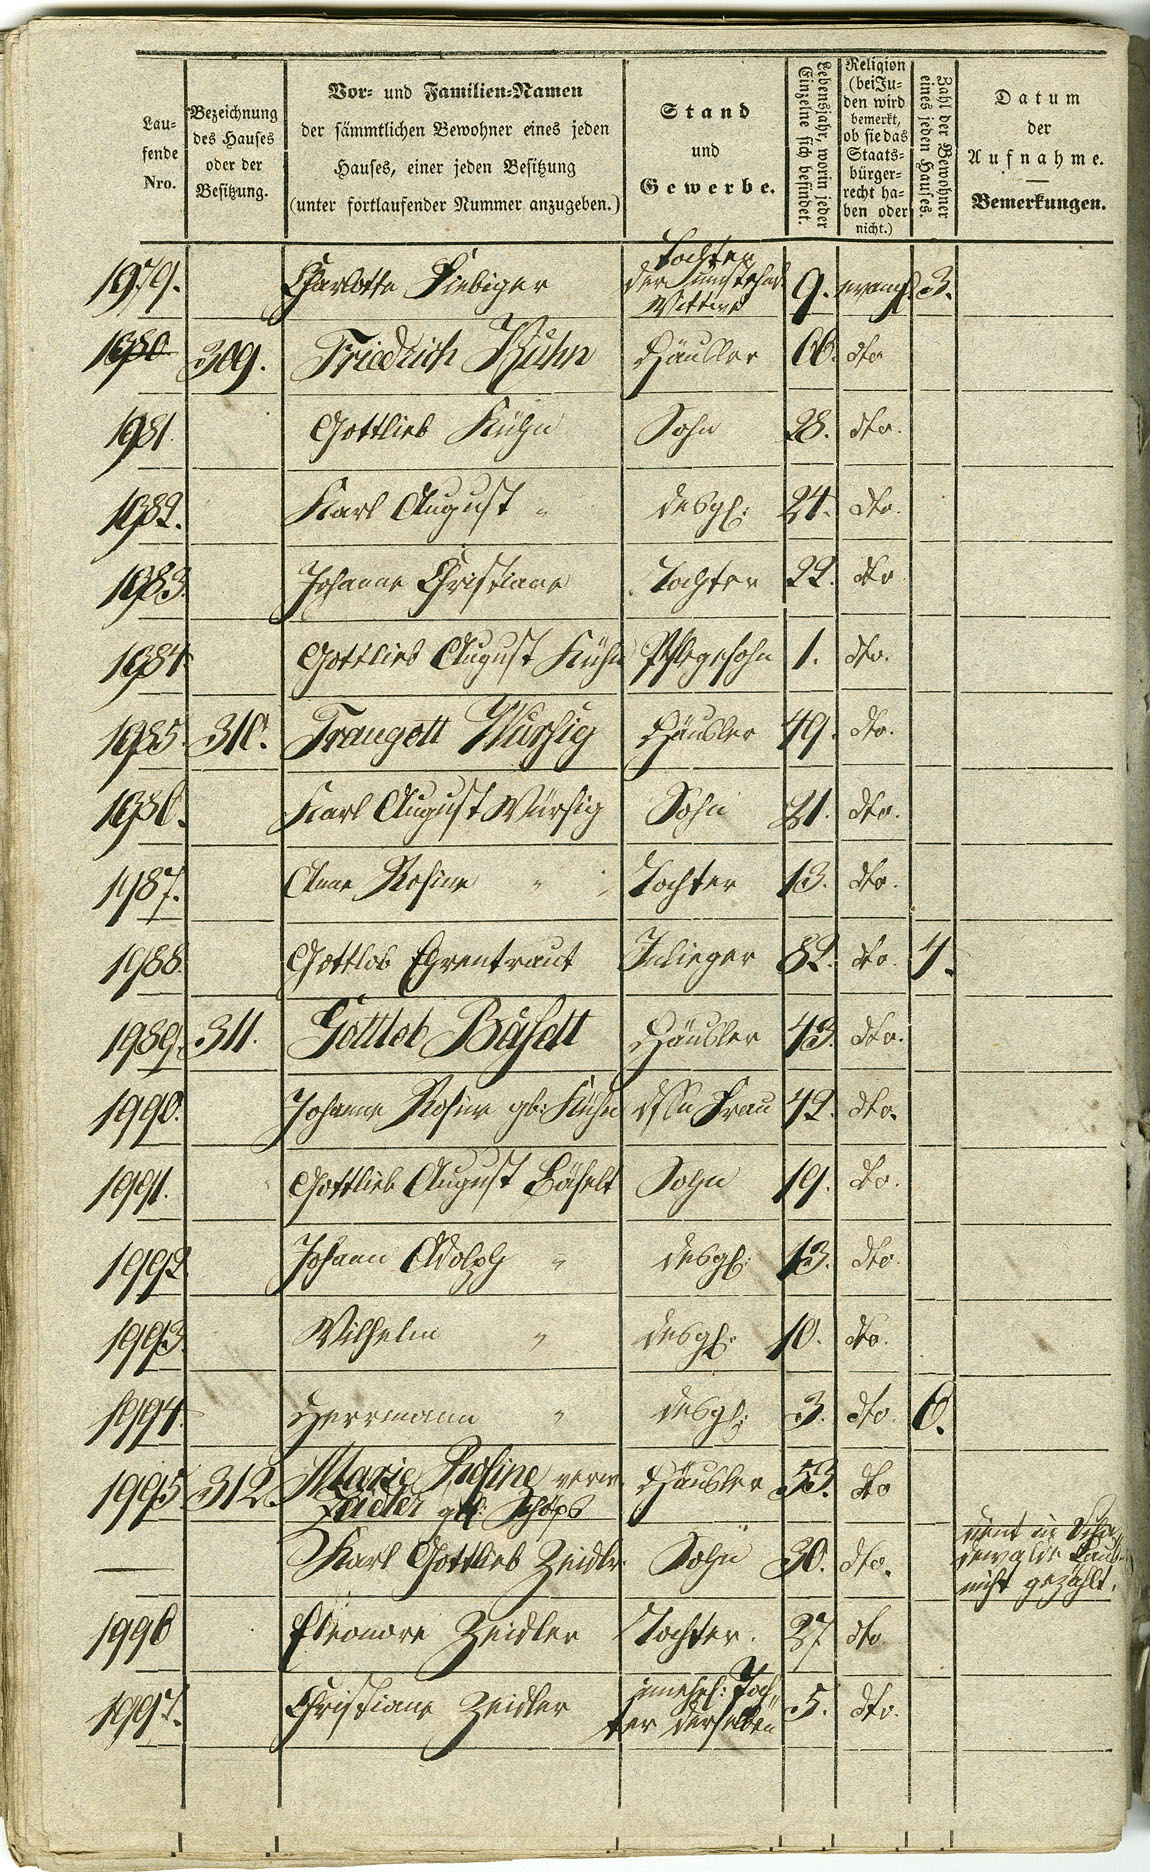 Lau-
fende
Nro.
Bezeichnung
des Hauses
oder der
Besitzung.
Vor- und Familien-Namen
der sämmtlichen Bewohner eines jeden
Hauses, einer jeden Besitzung
(unter fortlaufender Nummer anzugeben.)
Stand
und
Gewerbe.
Lebensjahr, worin jeder
Einzelne sich befindet.
Religion
(bei Ju-
den wird
bemerkt,
ob sie das
Staats-
bürger-
recht ha-
ben oder
nicht.)
Zahl der Bewohner
eines jeden Hauses.
Datum
der
Aufnahme.
Bemerkungen.
1979. Charlotte Liebiger Tochter 9. evangl. 3.
der
Wittwe
1980 309. Friedrich Kühn Häusler 66. dto
1981. Gottlieb Kühn Sohn 28. dto.
1982. Karl August " desgl: 24. dto.
1983. Johanne Christiane Tochter 22. dto
1984 Gottlieb August Kühn Pflegesohn 1. dto.
1985. 310. Traugott Würsig Häusler 49. dto.
1986. Karl August Würsig Sohn 21. dto.
1987. Anne Rosine " Tochter 13. dto.
1988. Gottlob Ehrentraut Inlieger 82. dto. 4.
1989. 311. Gottlob Bäselt Häusler 43. dto.
1990. Johanne Rosine gb: Kühn dssn Frau 42. dto.
1991. Gottlieb August Bäselt Sohn 19. dto.
1992. Johann Adolph " desgl: 13. dto.
1993. Wilhelm " desgl: 10. dto.
1994. Herrmann " desgl: 3. dto. 6.
1995 312. Marie Rosine verw. Häusler 53. dto
Zeidler geb: Schöps
— Karl Gottlieb Zeidler Sohn 30. dto. dient in
nicht gezählt.
1996 Eleonore Zeidler Tochter. 27 dto.
1997. Christiane Zeidler unehel: Toch- 5. dto.
ter derselben